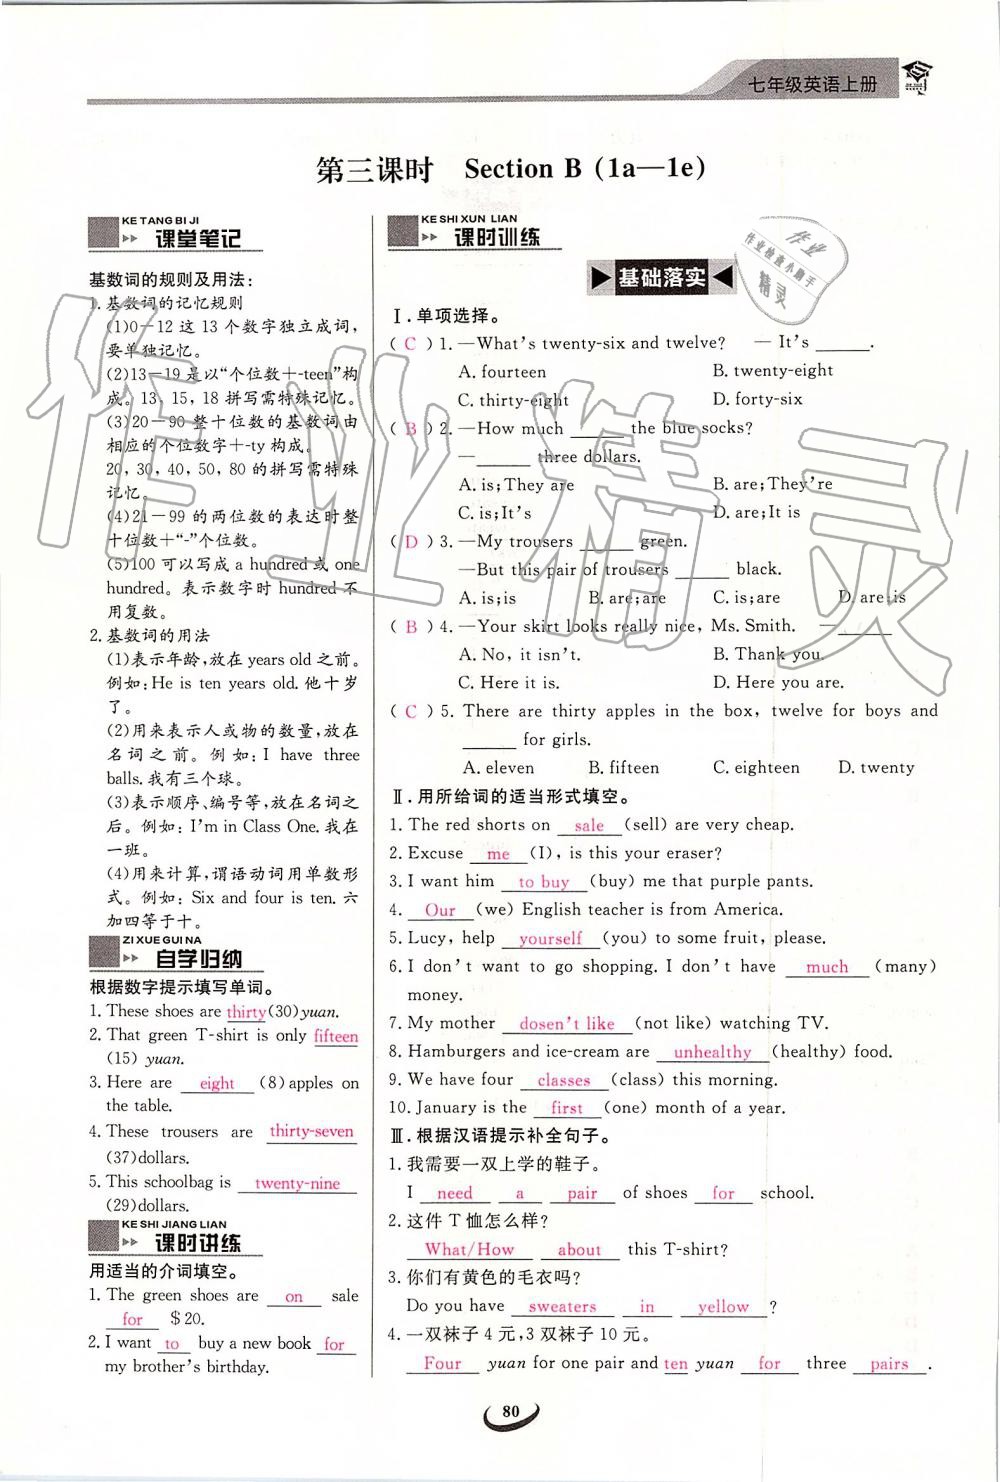 七年级英语上册
第三课时 Section B (1a—1e)
KE TANG BI JI
课堂笔记
基数词的规则及用法:
1. 基数词的记忆规则
(1)0－12 这 13 个数字独立成词,
要单独记忆。
(2)13－19 是以“个位数＋-teen”构
成。13, 15, 18 拼写需特殊记忆。
(3)20－90 整十位数的基数词由
相应的个位数字＋-ty 构成。
20, 30, 40, 50, 80 的拼写需特殊
记忆。
(4)21－99 的两位数的表达时整
十位数＋“-”个位数。
(5)100 可以写成 a hundred 或 one
hundred。表示数字时 hundred 不
用复数。
2. 基数词的用法
(1)表示年龄,放在 years old 之前。
例如:He is ten years old. 他十岁
了。
(2)用来表示人或物的数量,放在
名词之前。例如:I have three
balls. 我有三个球。
(3)表示顺序、编号等,放在名词之
后。例如: I'm in Class One. 我在
一班。
(4)用来计算,谓语动词用单数形
式。例如: Six and four is ten. 六
加四等于十。
ZI XUE GUI NA
自学归纳
根据数字提示填写单词。
1. These shoes are thirty(30) yuan.
2. That green T-shirt is only fifteen
(15) yuan.
3. Here are eight (8) apples on
the table.
4. These trousers are thirty-seven
(37)dollars.
5. This schoolbag is twenty-nine
(29)dollars.
KE SHI JIANG LIAN
课时讲练
用适当的介词填空。
1. The green shoes are on sale
for $20.
2. I want to buy a new book for
my brother's birthday.
KE SHI XUN LIAN
课时训练
基础落实
Ⅰ. 单项选择。
( C ) 1. —What's twenty-six and twelve? — It's ______.
A. fourteen B. twenty-eight
C. thirty-eight D. forty-six
( B ) 2. —How much ______ the blue socks?
—______ three dollars.
A. is;They are B. are;They're
C. is;It's D. are;It is
( D ) 3. —My trousers ______ green.
—But this pair of trousers ______ black.
A. is;is B. are;are C. is;are D. are;is
( B ) 4. —Your skirt looks really nice, Ms. Smith. —______
A. No, it isn't. B. Thank you.
C. Here it is. D. Here you are.
( C ) 5. There are thirty apples in the box, twelve for boys and
______ for girls.
A. eleven B. fifteen C. eighteen D. twenty
Ⅱ. 用所给词的适当形式填空。
1. The red shorts on sale (sell) are very cheap.
2. Excuse me (I), is this your eraser?
3. I want him to buy (buy) me that purple pants.
4. Our (we) English teacher is from America.
5. Lucy, help yourself (you) to some fruit, please.
6. I don't want to go shopping. I don't have much (many)
money.
7. My mother dosen't like (not like) watching TV.
8. Hamburgers and ice-cream are unhealthy (healthy) food.
9. We have four classes (class) this morning.
10. January is the first (one) month of a year.
Ⅲ. 根据汉语提示补全句子。
1. 我需要一双上学的鞋子。
I need a pair of shoes for school.
2. 这件 T 恤怎么样?
What/How about this T-shirt?
3. 你们有黄色的毛衣吗?
Do you have sweaters in yellow ?
4. 一双袜子 4 元, 3 双袜子 10 元。
Four yuan for one pair and ten yuan for three pairs .
80
作业精灵
作业
作业检查小助手
精灵